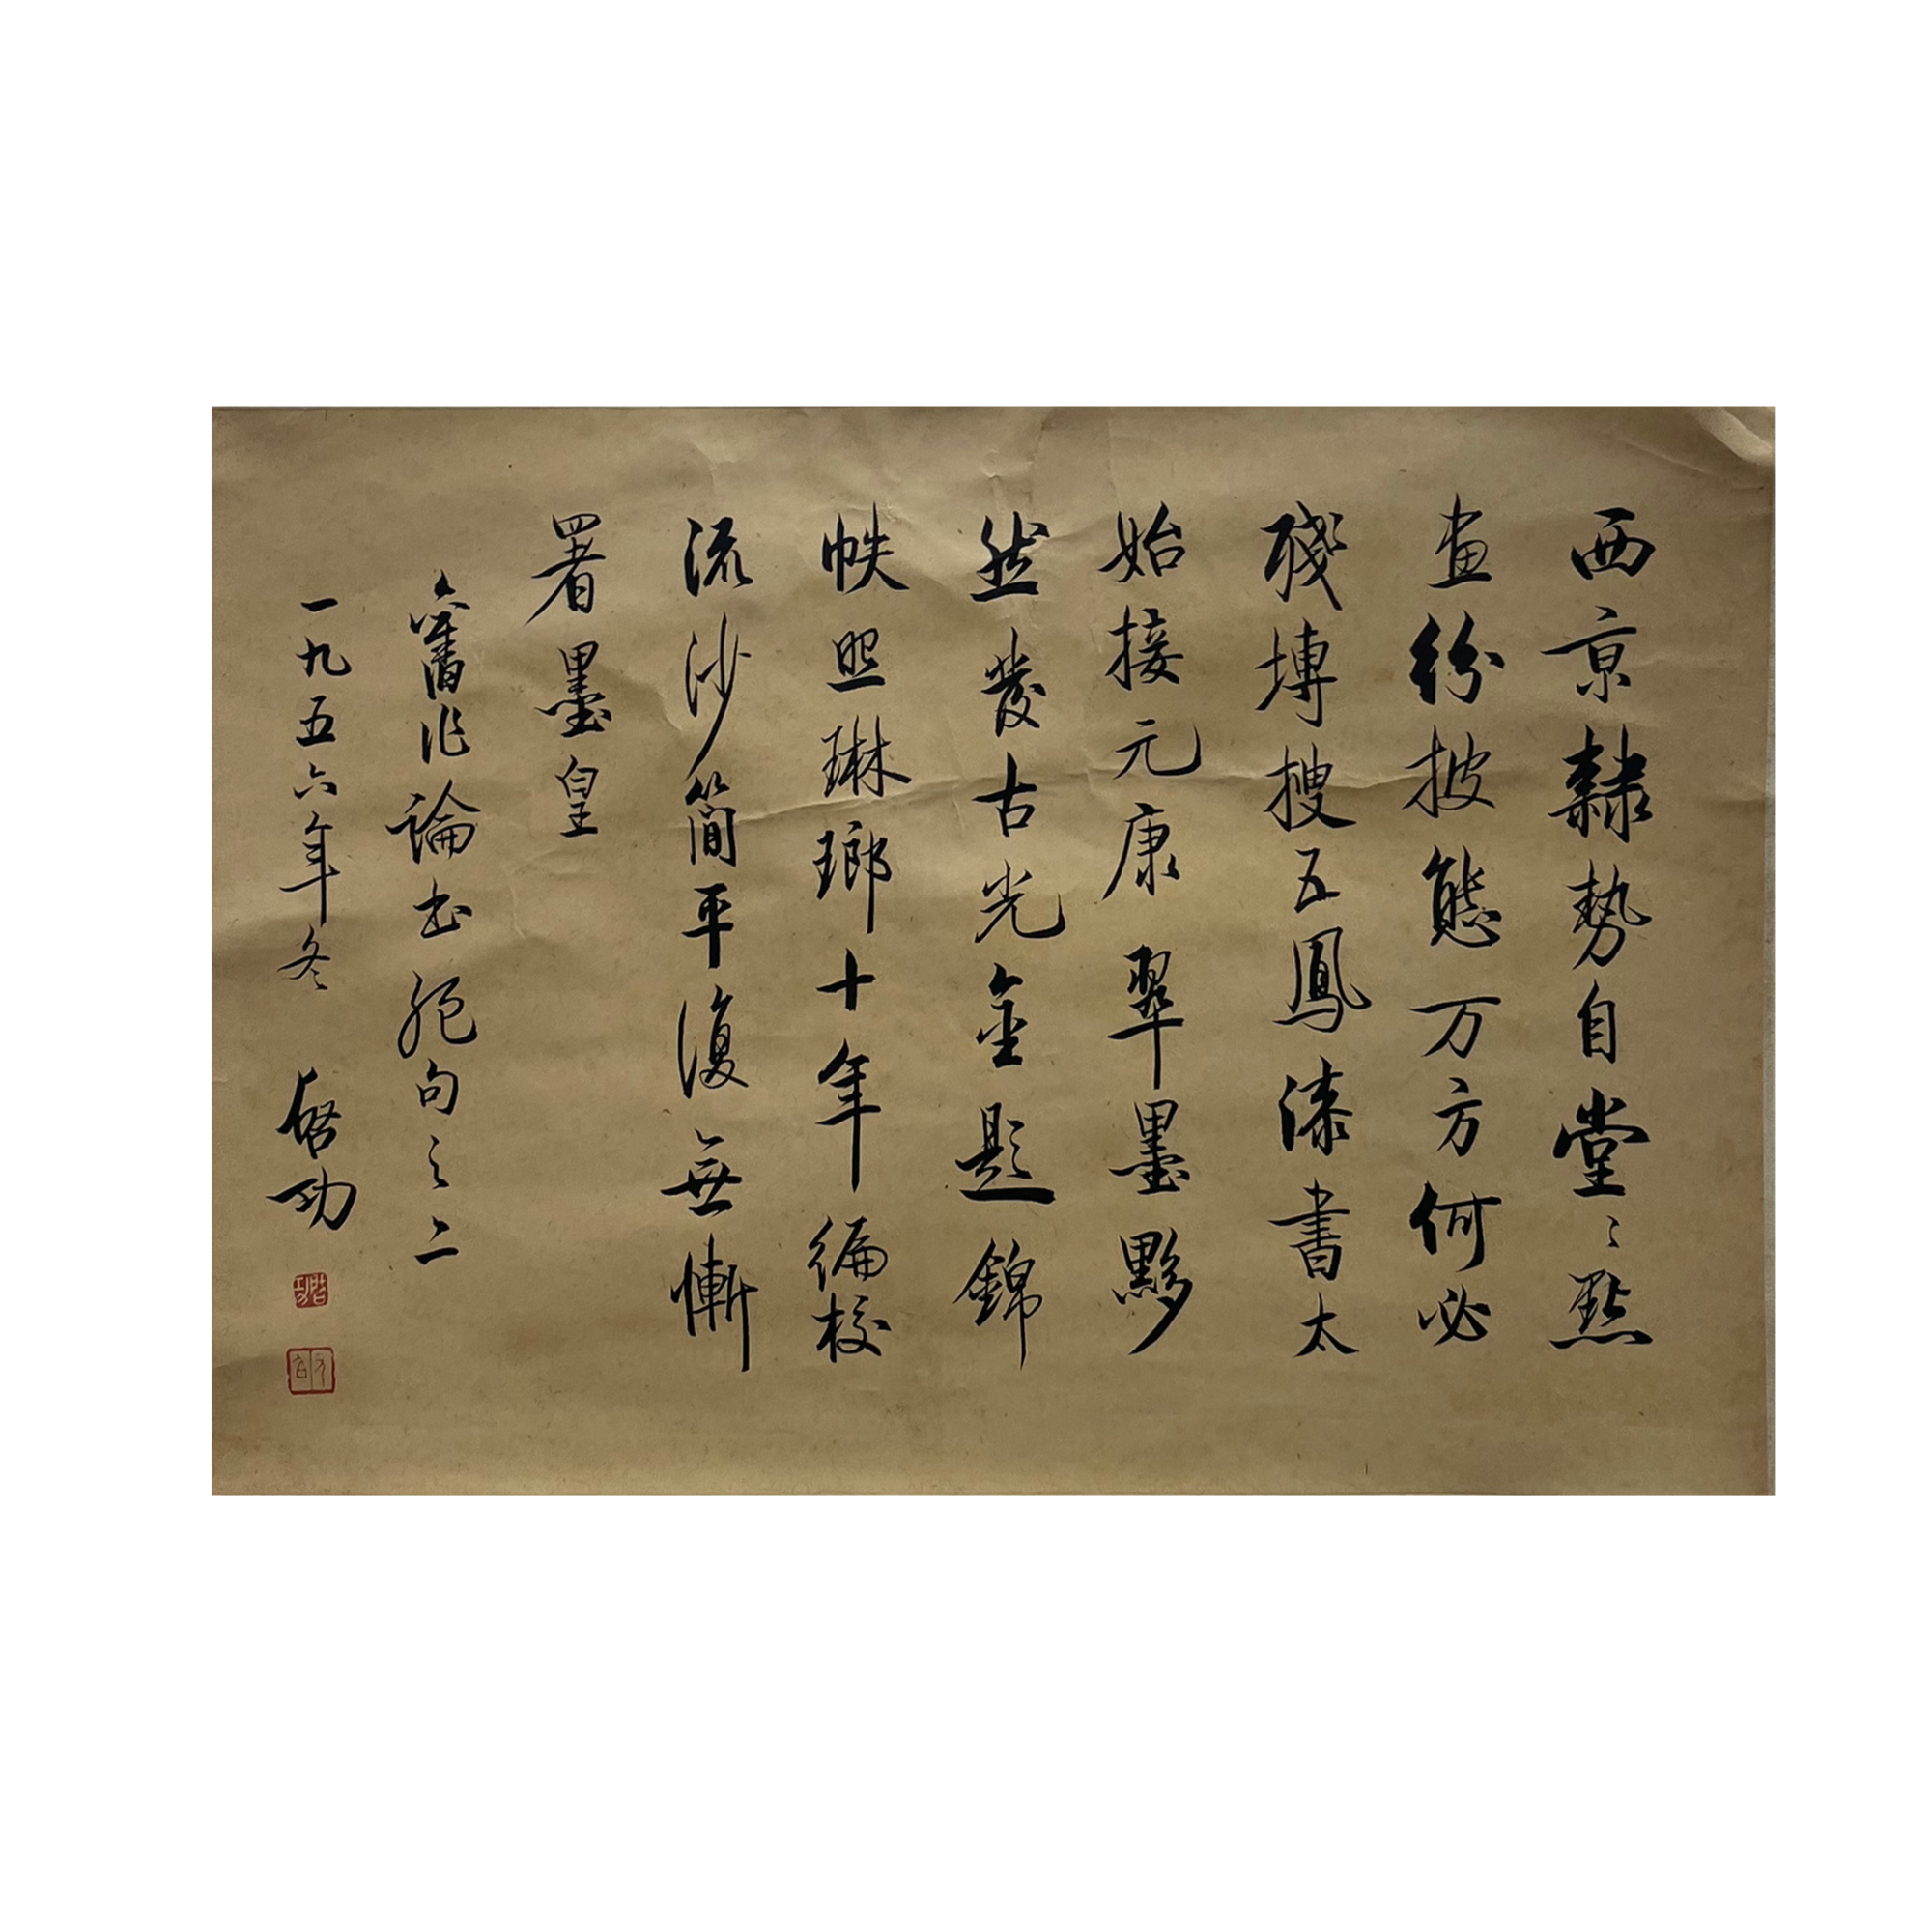 西京隸勢自堂〻點
畫紛披態万方何必
殘塼搜五鳳漆書太
始接元康翠墨黟
然發古光金題錦
帙照琳瑯十年編校
流沙簡平復無慚
署墨皇
舊作論書絕句之二
一九五六年冬 啓功
啓功